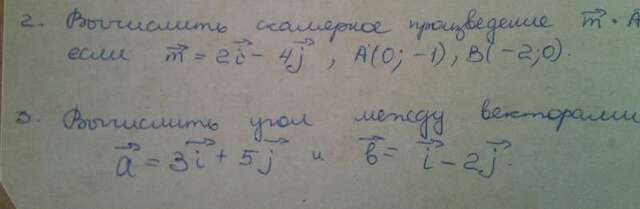 2. Вычислить скалярное произведение m⃗ · A
если m⃗ = 2i⃗ - 4j⃗, A(0; -1), B(-2; 0).
3. Вычислить угол между векторами
a⃗ = 3i⃗ + 5j⃗ и b⃗ = i⃗ - 2j⃗.